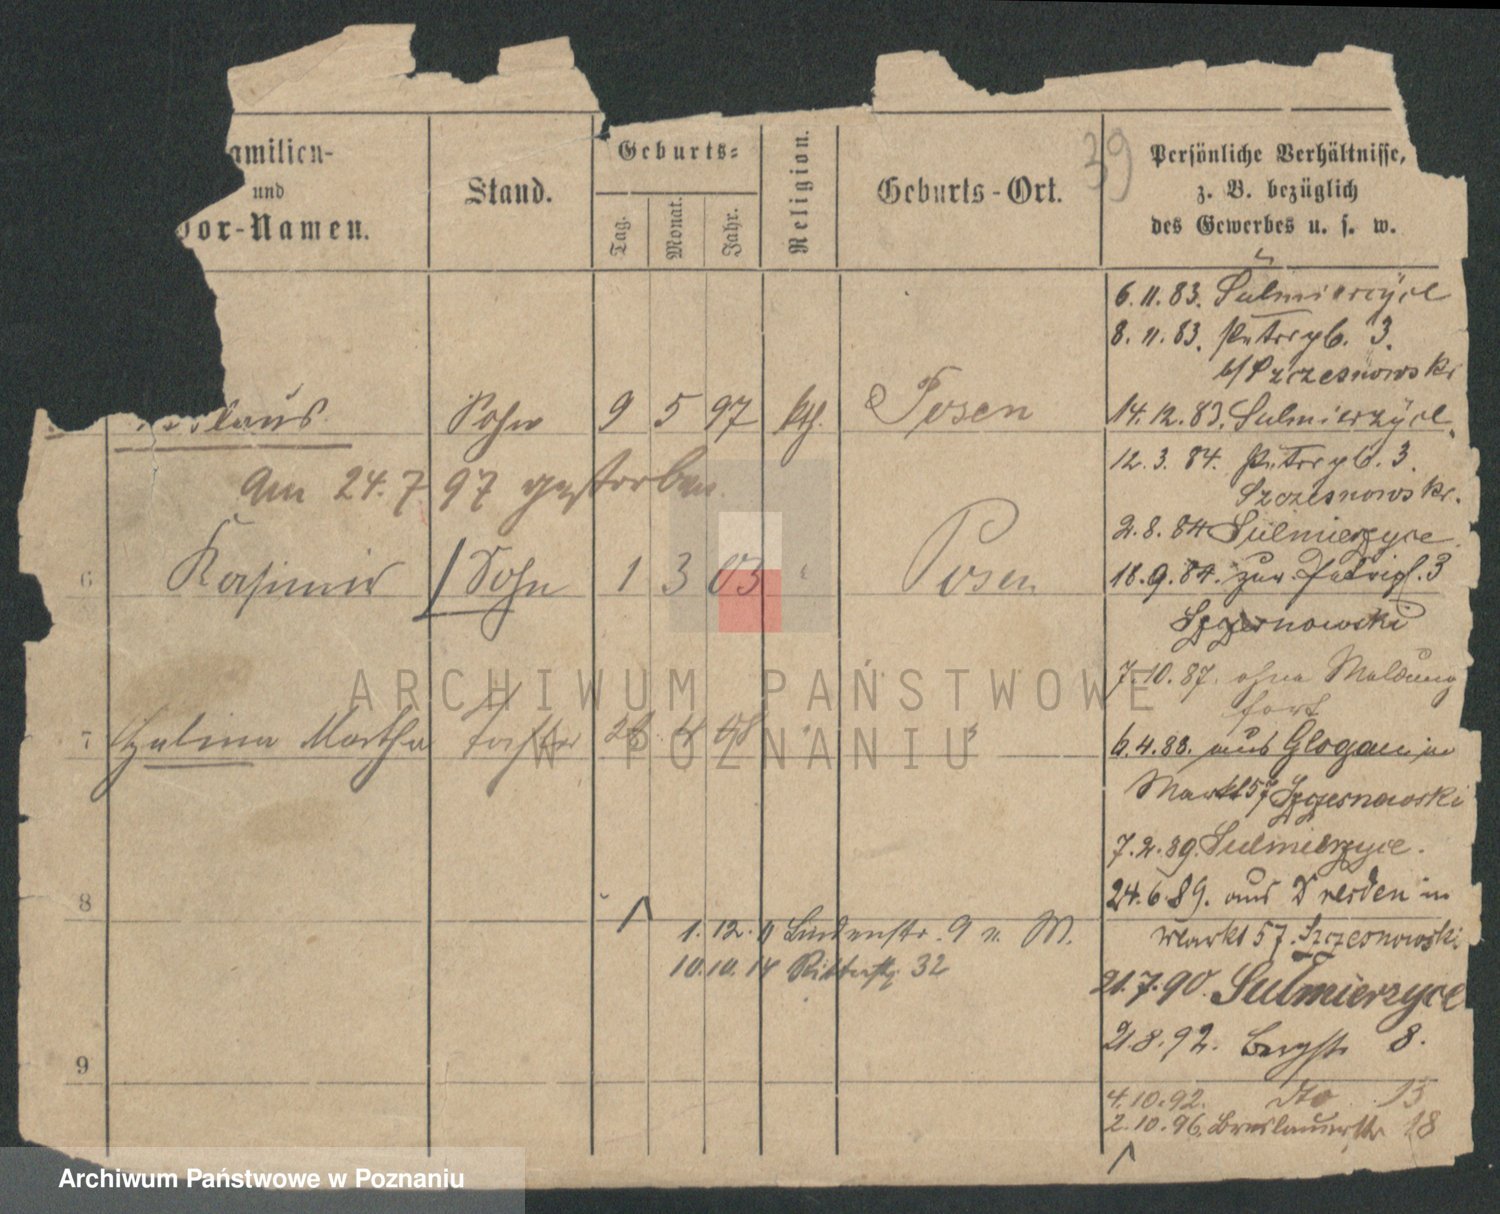 amilien-
und
or-Namen.
Stand.
Geburts-
Tag.
Monat.
Jahr.
Religion.
Geburts-Ort.
39
Persönliche Verhältnisse,
z. B. bezüglich
des Gewerbes u. s. w.
laus Sohn 9 5 97 kth. Posen
Am 24.7.97 gestorben.
6 Kasimir Sohn 1 3 03 " Posen
7 Halina Martha Tochter 28. 4 08 " "
8
1.12.11 Lindenstr. 9 v. W.
10.10.14 Ritterstr. 32
9
6.11.83. Sulmierzyce
8.11.83. Petrypl. 3.
b/ Szczesnowski
14.12.83. Sulmierzyce.
12.3.84. Petrypl. 3.
Szczesnowski.
2.8.84 Sulmierzyce
18.9.84. zur. Petripl. 3
Szczesnowski
7.10.87. ohne Meldung
fort
6.4.88. aus Glogau in
Markt 57 Szczesnowski
7.2.89. Sulmierzyce.
24.6.89. aus Dresden in
Markt 57. Szczesnowski
21.7.90. Sulmierzyce
21.8.92. Bergstr 8.
4.10.92. dto 15
2.10.96. Breslauerstr 18
ARCHIWUM PAŃSTWOWE
W POZNANIU
Archiwum Państwowe w Poznaniu